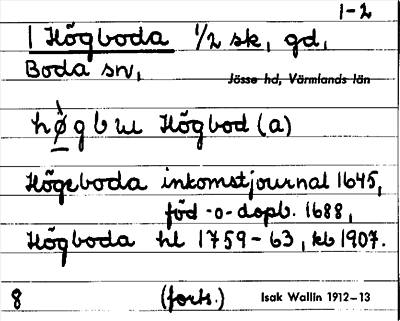 1-2
1 Högboda 1/2 sk, gd,
Boda sn,
Jösse hd, Värmlands län
Högbod (a)
Högeboda inkomstjournal 1645,
föd -o- dopb. 1688,
Högboda hl 1759-63, kb 1907.
8 (forts.) Isak Wallin 1912-13